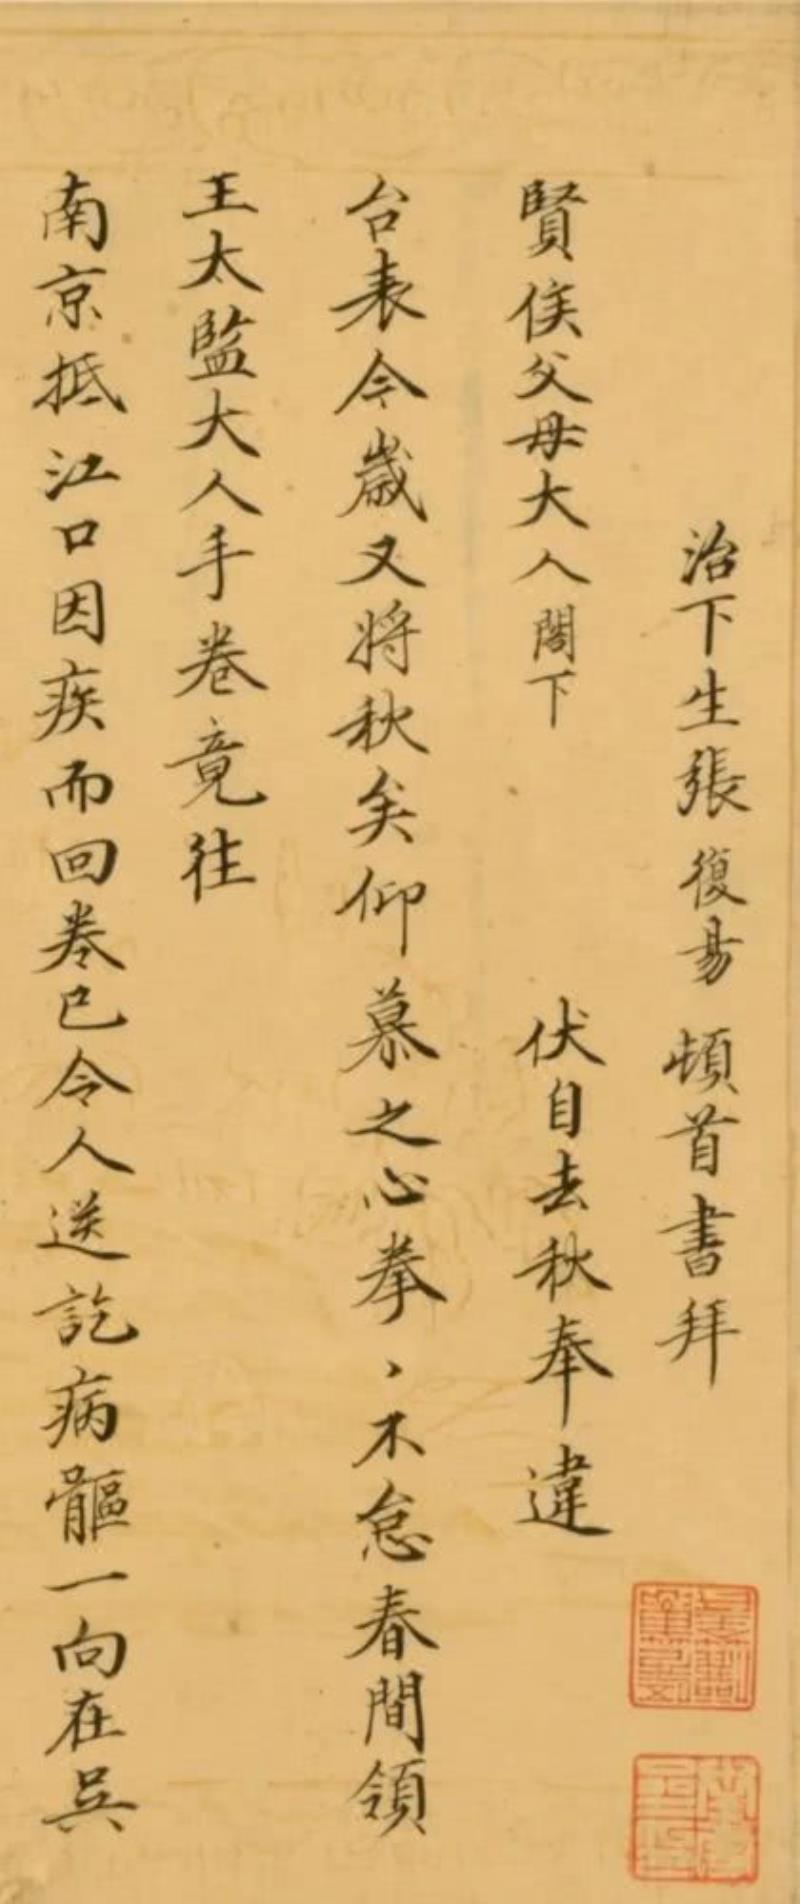 治下生張復昜頓首書拜
賢侯父母大人閣下 伏自去秋奉違
台表今歲又將秋矣仰慕之心拳、不怠春間領
王太監大人手卷竟往
南京抵江口因疾而回卷已令人送訖病軀一向在吳